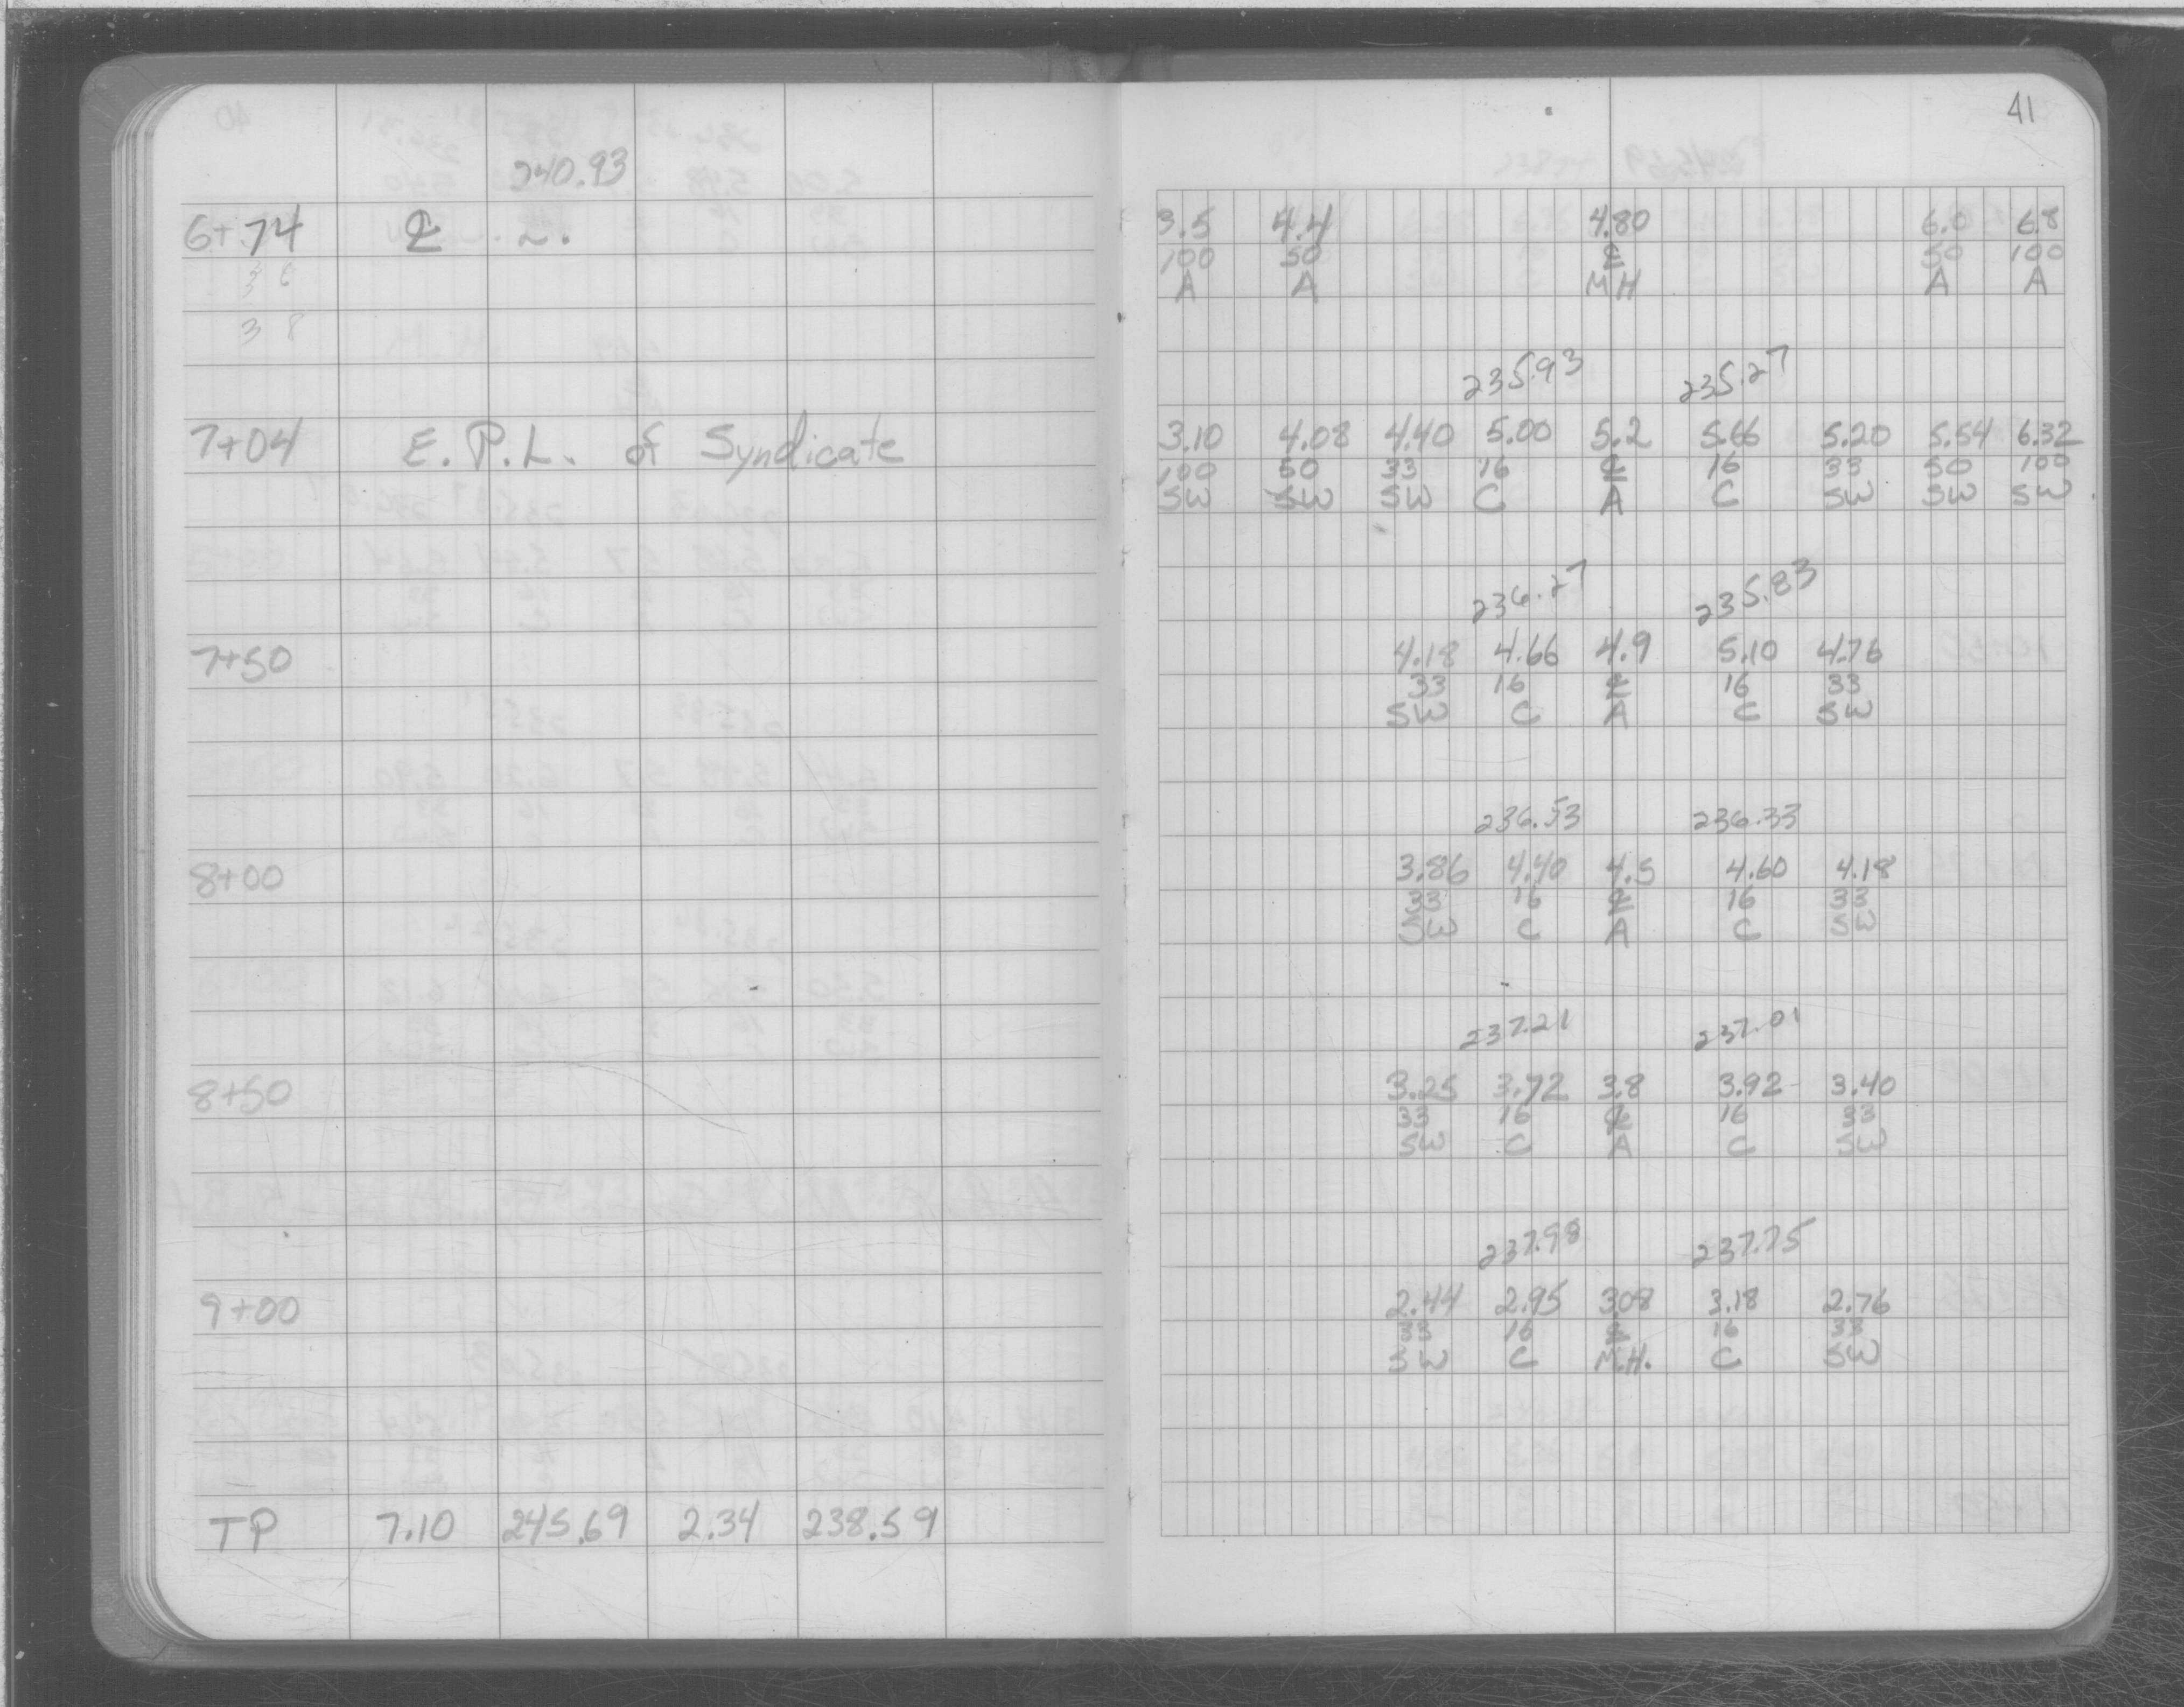 41
240.93
6+74 ℄
3 6
3 8
7+04 E.P.L. of Syndicate
7+50
8+00
8+50
9+00
TP 7.10 245.69 2.34 238.59
3.5 4.4 4.80 6.0 6.8
100 50 ℄ 50 100
A A MH A A
235.93 235.27
3.10 4.08 4.40 5.00 5.2 5.66 5.20 5.54 6.32
100 50 33 16 ℄ 16 33 50 100
SW SW SW C A C SW SW SW
236.27 235.83
4.18 4.66 4.9 5.10 4.76
33 16 ℄ 16 33
SW C A C SW
236.53 236.33
3.86 4.40 4.5 4.60 4.18
33 16 ℄ 16 33
SW C A C SW
237.21 237.01
3.25 3.72 3.8 3.92 3.40
33 16 ℄ 16 33
SW C A C SW
237.98 237.75
2.44 2.95 3.08 3.18 2.76
33 16 ℄ 16 33
SW C M.H. C SW